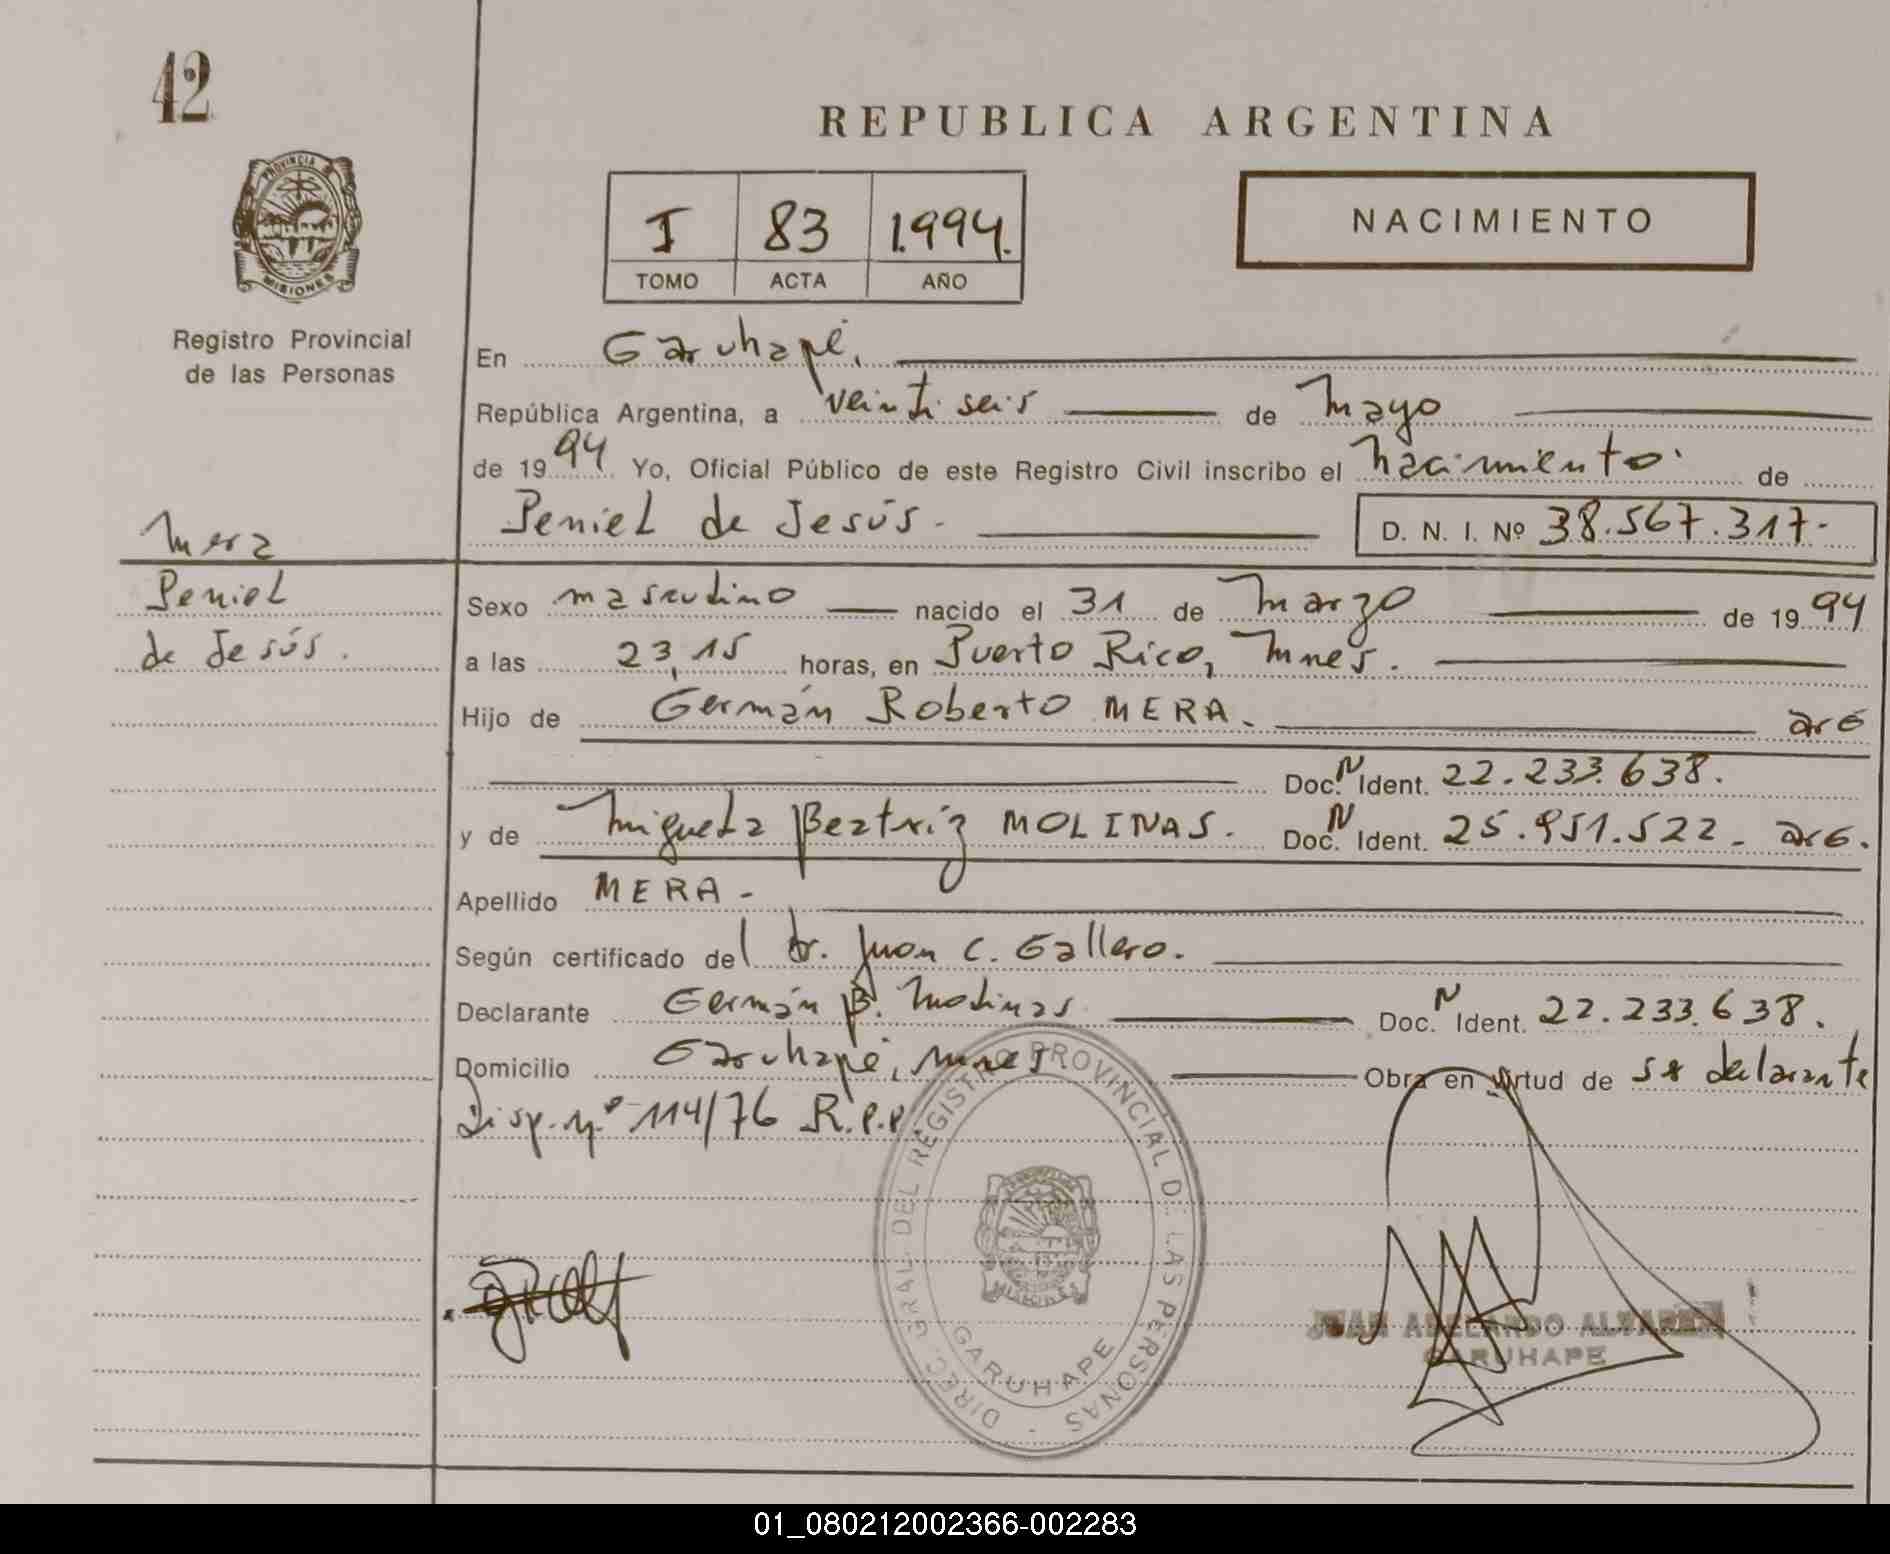 42
REPUBLICA ARGENTINA
PROVINCIA
MISIONES
I 83 1.994.
TOMO ACTA AÑO
NACIMIENTO
Registro Provincial
de las Personas
En Garuhapé.
República Argentina, a veintiseis de Mayo
de 1994 Yo, Oficial Público de este Registro Civil inscribo el nacimiento de
Peniel de Jesús.
D. N. I. Nº 38.567.317-
Mera
Peniel
de Jesús.
Sexo masculino nacido el 31 de Marzo de 1994
a las 23,15 horas, en Puerto Rico, Mnes.
Hijo de Germán Roberto MERA. arg
Doc. N Ident. 22.233.638.
y de Miguela Beatriz MOLINAS. Doc. N Ident. 25.951.522 - arg.
Apellido MERA -
Según certificado del dr. Juan C. Gallero.
Declarante Germán B. Molinas Doc. N Ident. 22.233.638.
Domicilio Garuhapé, Mnes Obra en virtud de ser declarante
Disp. Nº 114/76 R.P.P.
DIREC. GRAL. DEL REGISTRO PROVINCIAL DE LAS PERSONAS -
MISIONES
GARUHAPE
JUAN ABELARDO ALVAREZ
GARUHAPE
01_080212002366-002283